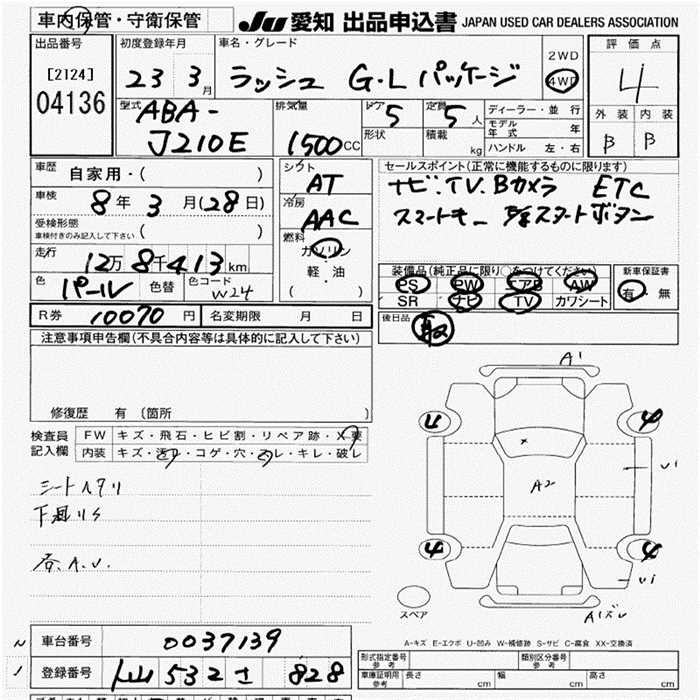 車内保管・守衛保管
JU 愛知 出品申込書 JAPAN USED CAR DEALERS ASSOCIATION
出品番号
[2124]
04136
初度登録年月
23 3月
車名・グレード
ラッシュ G・L パッケージ
2WD
4WD
評価点
4
外装 内装
B B
型式
ABA-
J210E
排気量
1500CC
ドア
5
形状
定員
5人
積載 kg
ディーラー・並行
モデル年式 年
ハンドル 左・右
車歴
自家用・( )
車検
8年 3月(28日)
受検形態
車検付きのみ記入して下さい ( )
走行
12万 8千413km
色
パール
色替
色コード
W24
シフト
AT
冷房
AAC
燃料
ガソリン
軽・油
( )
セールスポイント(正常に機能するものに限ります)
ナビ.TV.Bカメラ ETC
スマートキー スタートボタン
装備品(純正品に限り○をつけてください)
PS PW エアB AW
SR ナビ TV カワシート
新車保証書
有・無
後日品
取
R券 10070円
名変期限 月 日
注意事項申告欄(不具合内容等は具体的に記入して下さい)
修復歴 有 (箇所 )
検査員記入欄
FW キズ・飛石・ヒビ割・リペア跡・X要
内装 キズ・汚レ・コゲ・穴・スレ・キレ・破レ
シートヘタリ
下廻りS
A.U.
A1
U
4
U1
A2
4
4
U1
A1ズレ
スペア
A-キズ E-エクボ U-凹み W-補修跡 S-サビ C-腐食 XX-交換済
車台番号 0037139
登録番号 532 さ 828
形式指定番号
参考
類別区分番号
参考
車庫証明用
参考
長さ cm
幅 cm
高さ cm